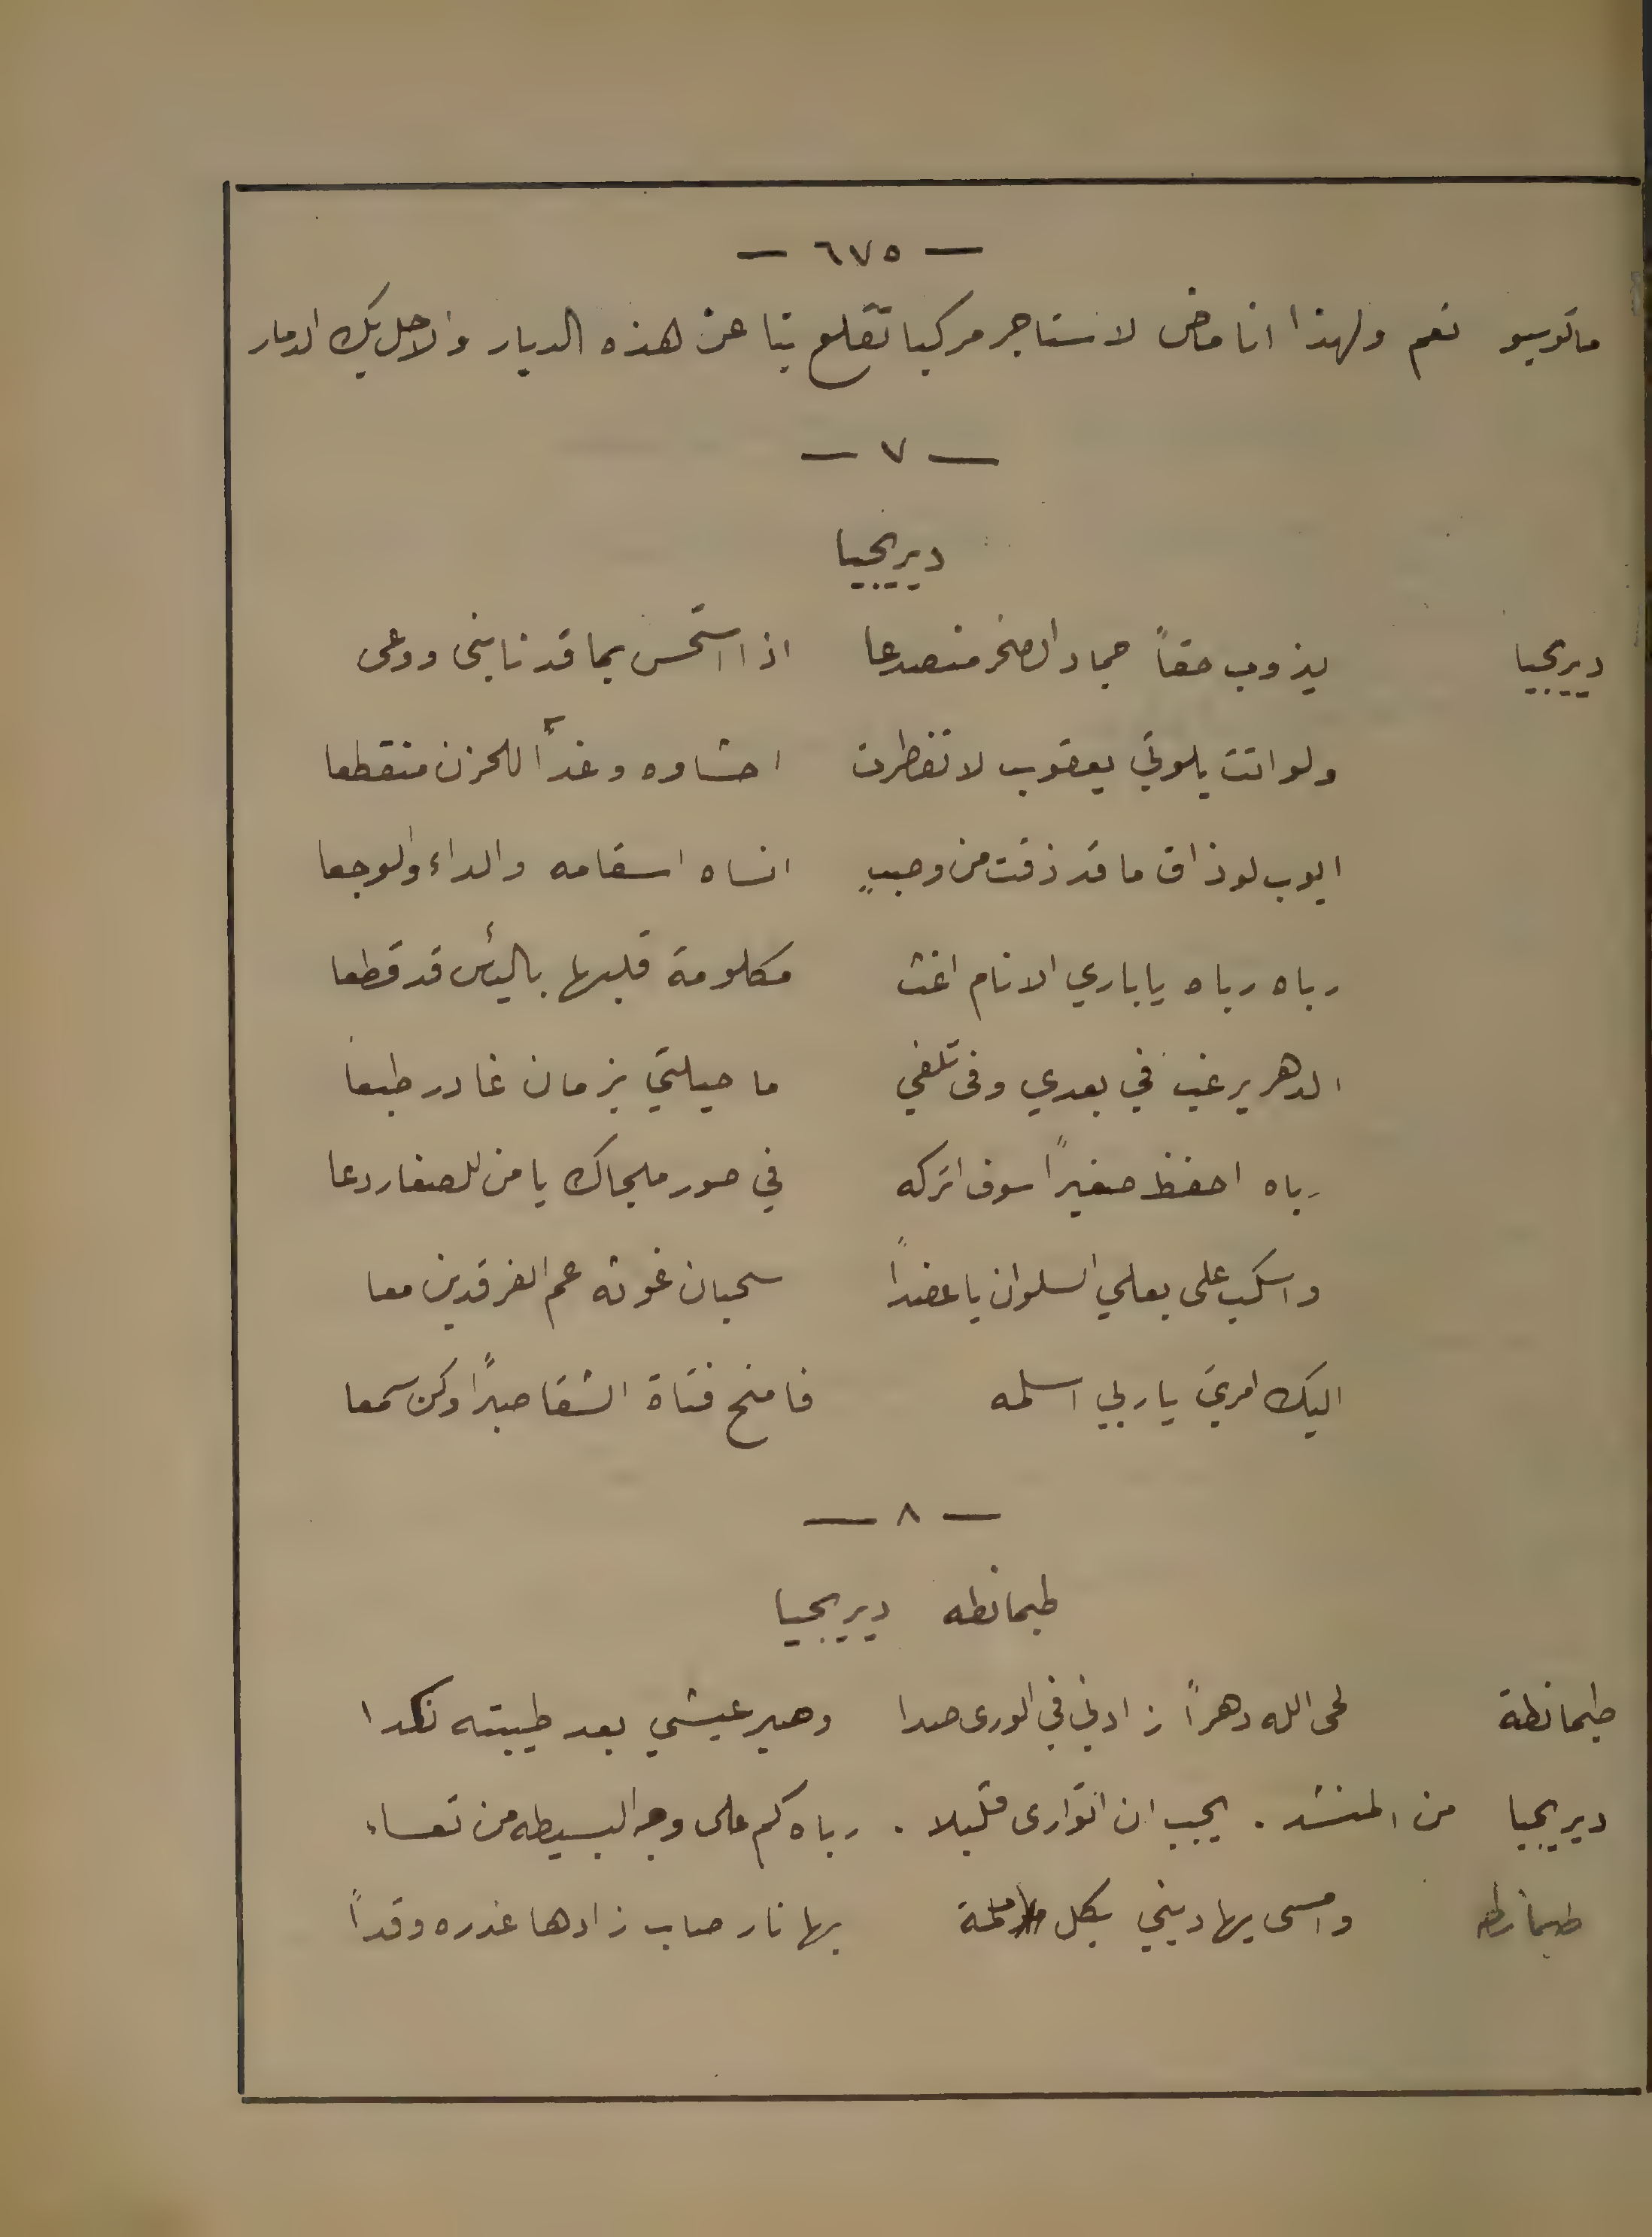 — ٦٧٥ —
ماتوسيو نعم ولهذا انا ماض لاستاجر مركبا تقلع بنا عن هذه الديار والا حل بك الدمار
— ٧ —
ديريجيا
ديريجيا يذوب حقاً جماد الصخر منصدعا اذا استحس بما قد نابني ووعى
ولو اتت بلوتي يعقوب لانفطرت احشاوه وغدا للحزن منقطعا
ايوب لو ذاق ما قد ذقت من وصبٍ انساه اسقامه والداء والوجعا
رباه رباه يا باري الانام اغث مكلومة قلبها باليأس قد قطعا
الدهر يرغب في بعدي وفى تلفي ما حيلتي بزمان غادر طبعا
رباه احفظ صغيراً سوف اتركه في صور ملجاك يا من للصغار دعا
واسكب على بعلي السلوان يا عضداً سحبان غوثه عم الفرقدين معا
اليك امري يا ربي اسلمه فامنح فتاة الشقا صبراً وكن سمعا
— ٨ —
طيمانطه ديريجيا
طيمانطة لحى الله دهراً زادني في الورى صدا وصير عيشي بعد طيبته نكدا
ديريجيا من المنشد . يجب ان اتوارى قليلا . رباه كم على وجه البسيطه من تعساء
طيمانطه وامسى يهاديني بكل ملمة بها نار صاب زادها غدره وقداً